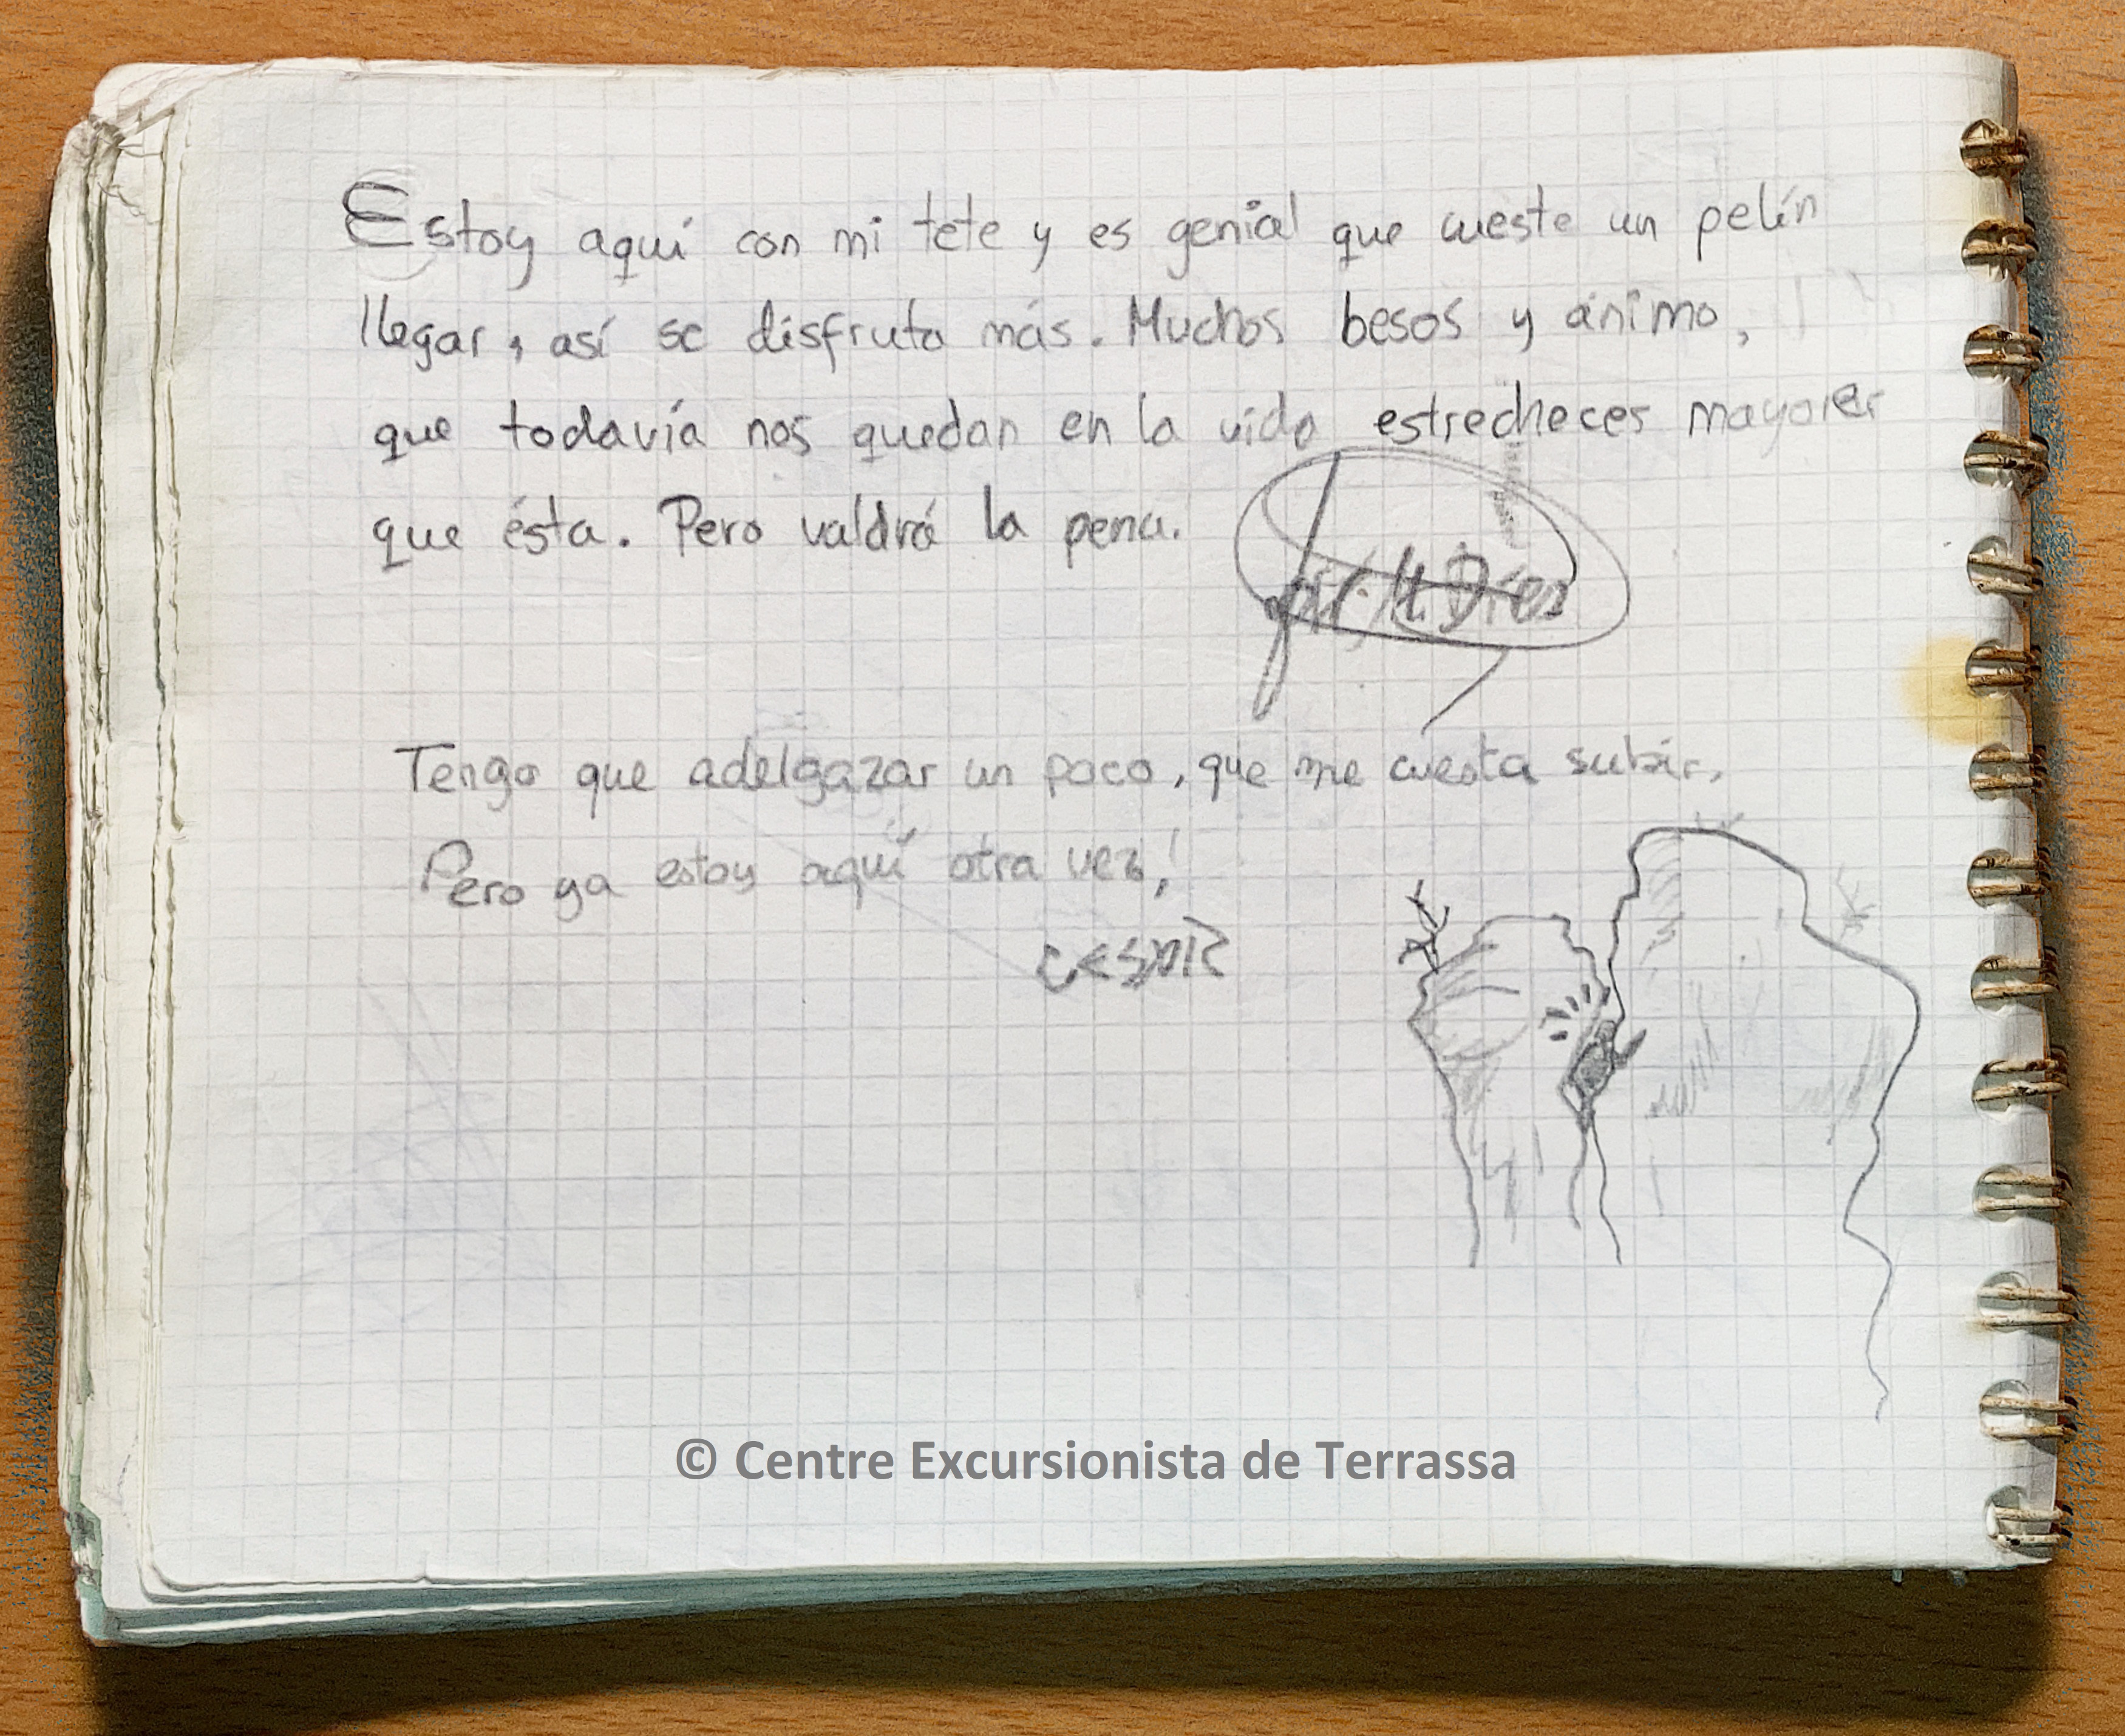 Estoy aquí con mi tete y es genial que cueste un pelín
llegar, así se disfruta más. Muchos besos y ánimo,
que todavía nos quedan en la vida estrecheces mayores
que ésta. Pero valdrá la pena.
Tengo que adelgazar un poco, que me cuesta subir,
Pero ya estoy aquí otra vez!
© Centre Excursionista de Terrassa